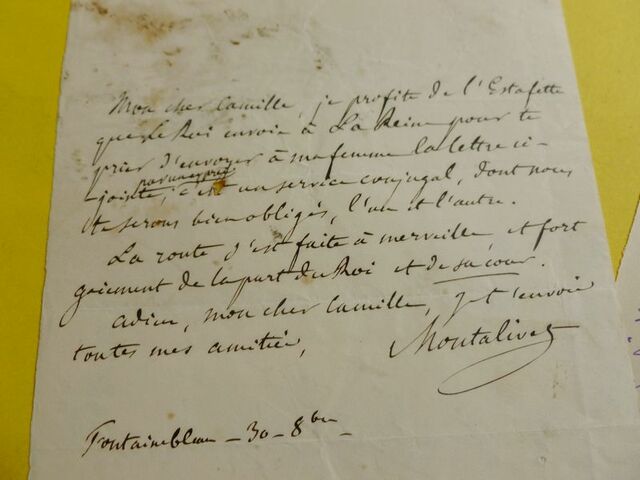 Mon cher Camille, je profite de l'Estafette
que le Roi envoie à La Reine pour te
prier d'envoyer à ma femme la lettre ci-
par un exprès
jointe; c'est un service conjugal, dont nous
te serons bien obligés, l'un et l'autre.
La route s'est faite à merveille et fort
gaiement de la part du Roi et de sa cour.
adieu, mon cher Camille, je t'envoie
toutes mes amitiés,
Montalivet
Fontainebleau - 30 - 8bre -